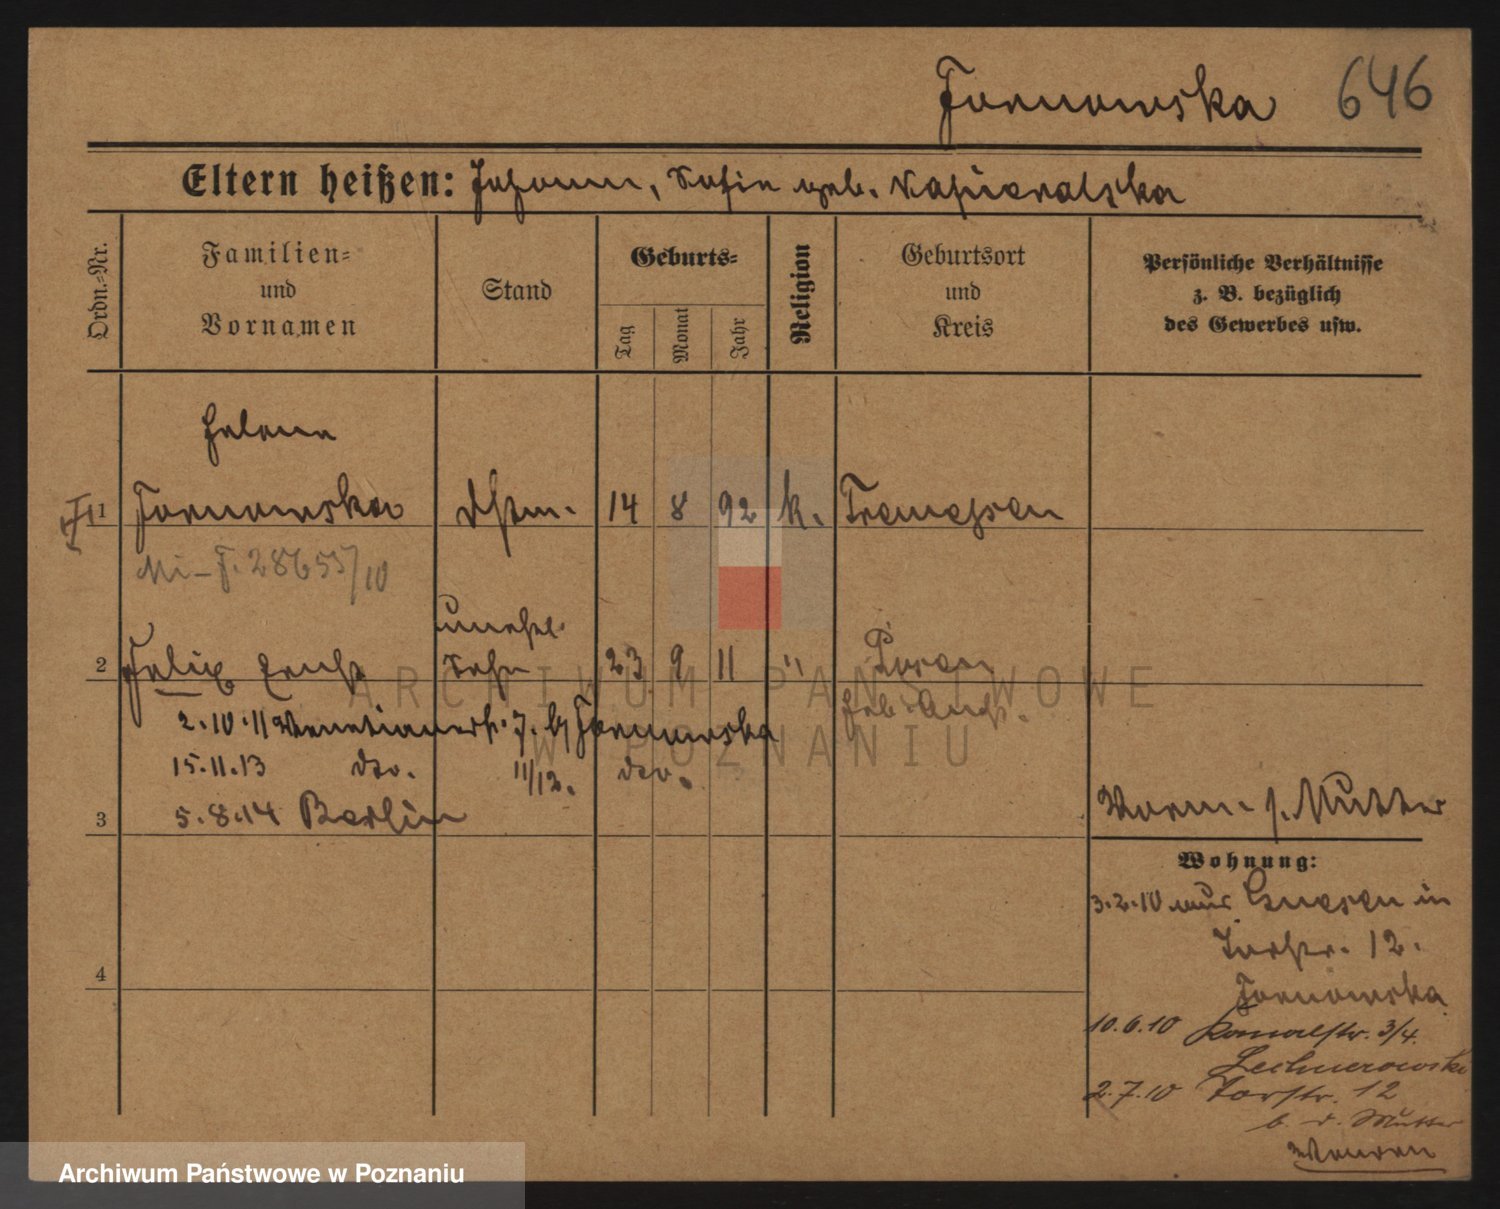 Tornowska 646
Eltern heißen: Johann, Sofie geb. Kapieralska
Ordn.-Nr.
Familien-
und
Vornamen
Stand
Geburts-
Tag
Monat
Jahr
Religion
Geburtsort
und
Kreis
Persönliche Verhältnisse
z. B. bezüglich
des Gewerbes usw.
Helene
1 Tornowska 14 8 92 k. Tremessen
Mi-F. 28655/10
unehel.
2 Felix Ernst Sohn 23 9 11 " Posen
2.10.11 Venetianerstr. 7. bei Tornowska
15.11.13 dto. 11/12. dto.
3 5.8.14 Berlin
Vorm. s. Mutter
Wohnung:
3.2.10 aus Gnesen in
Torstr. 12.
Tornowska
4
10.6.10 Kanalstr. 3/4.
2.7.10 Torstr. 12
b. d. Mutter
ARCHIWUM PAŃSTWOWE
W POZNANIU
Archiwum Państwowe w Poznaniu